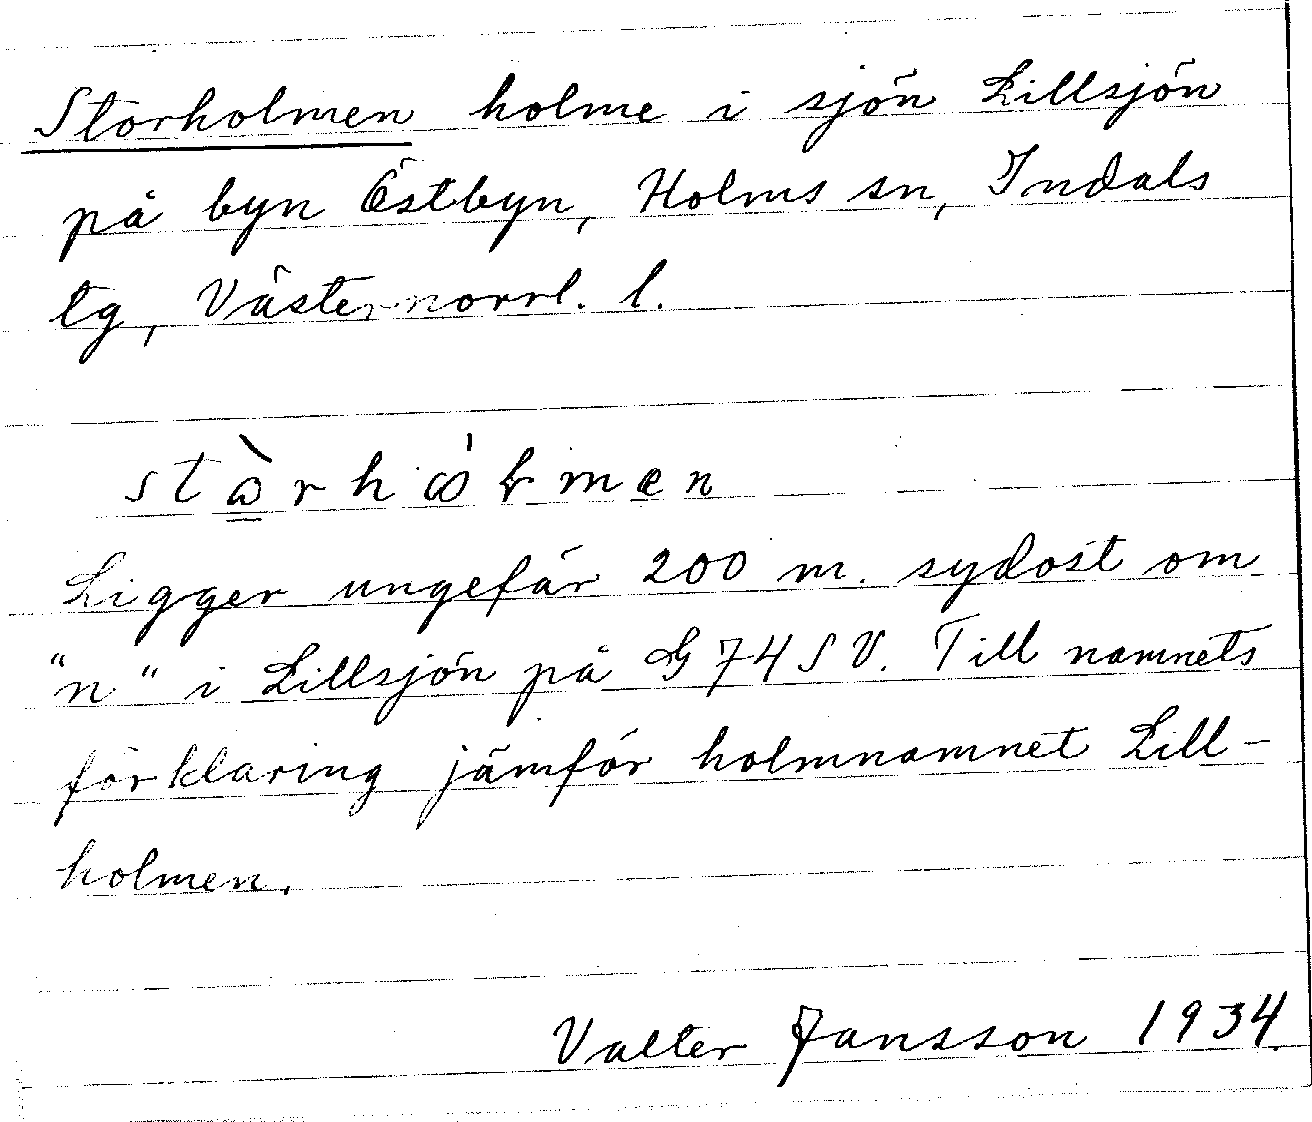 Storholmen holme i sjön Lillsjön
på byn Östbyn, Holms sn, Indals
tg, Västernorrl. l.
Ligger ungefär 200 m. sydost om
"n" i Lillsjön på G74SV. Till namnets
förklaring jämför holmnamnet Lill-
holmen.
Valter Jansson 1934.